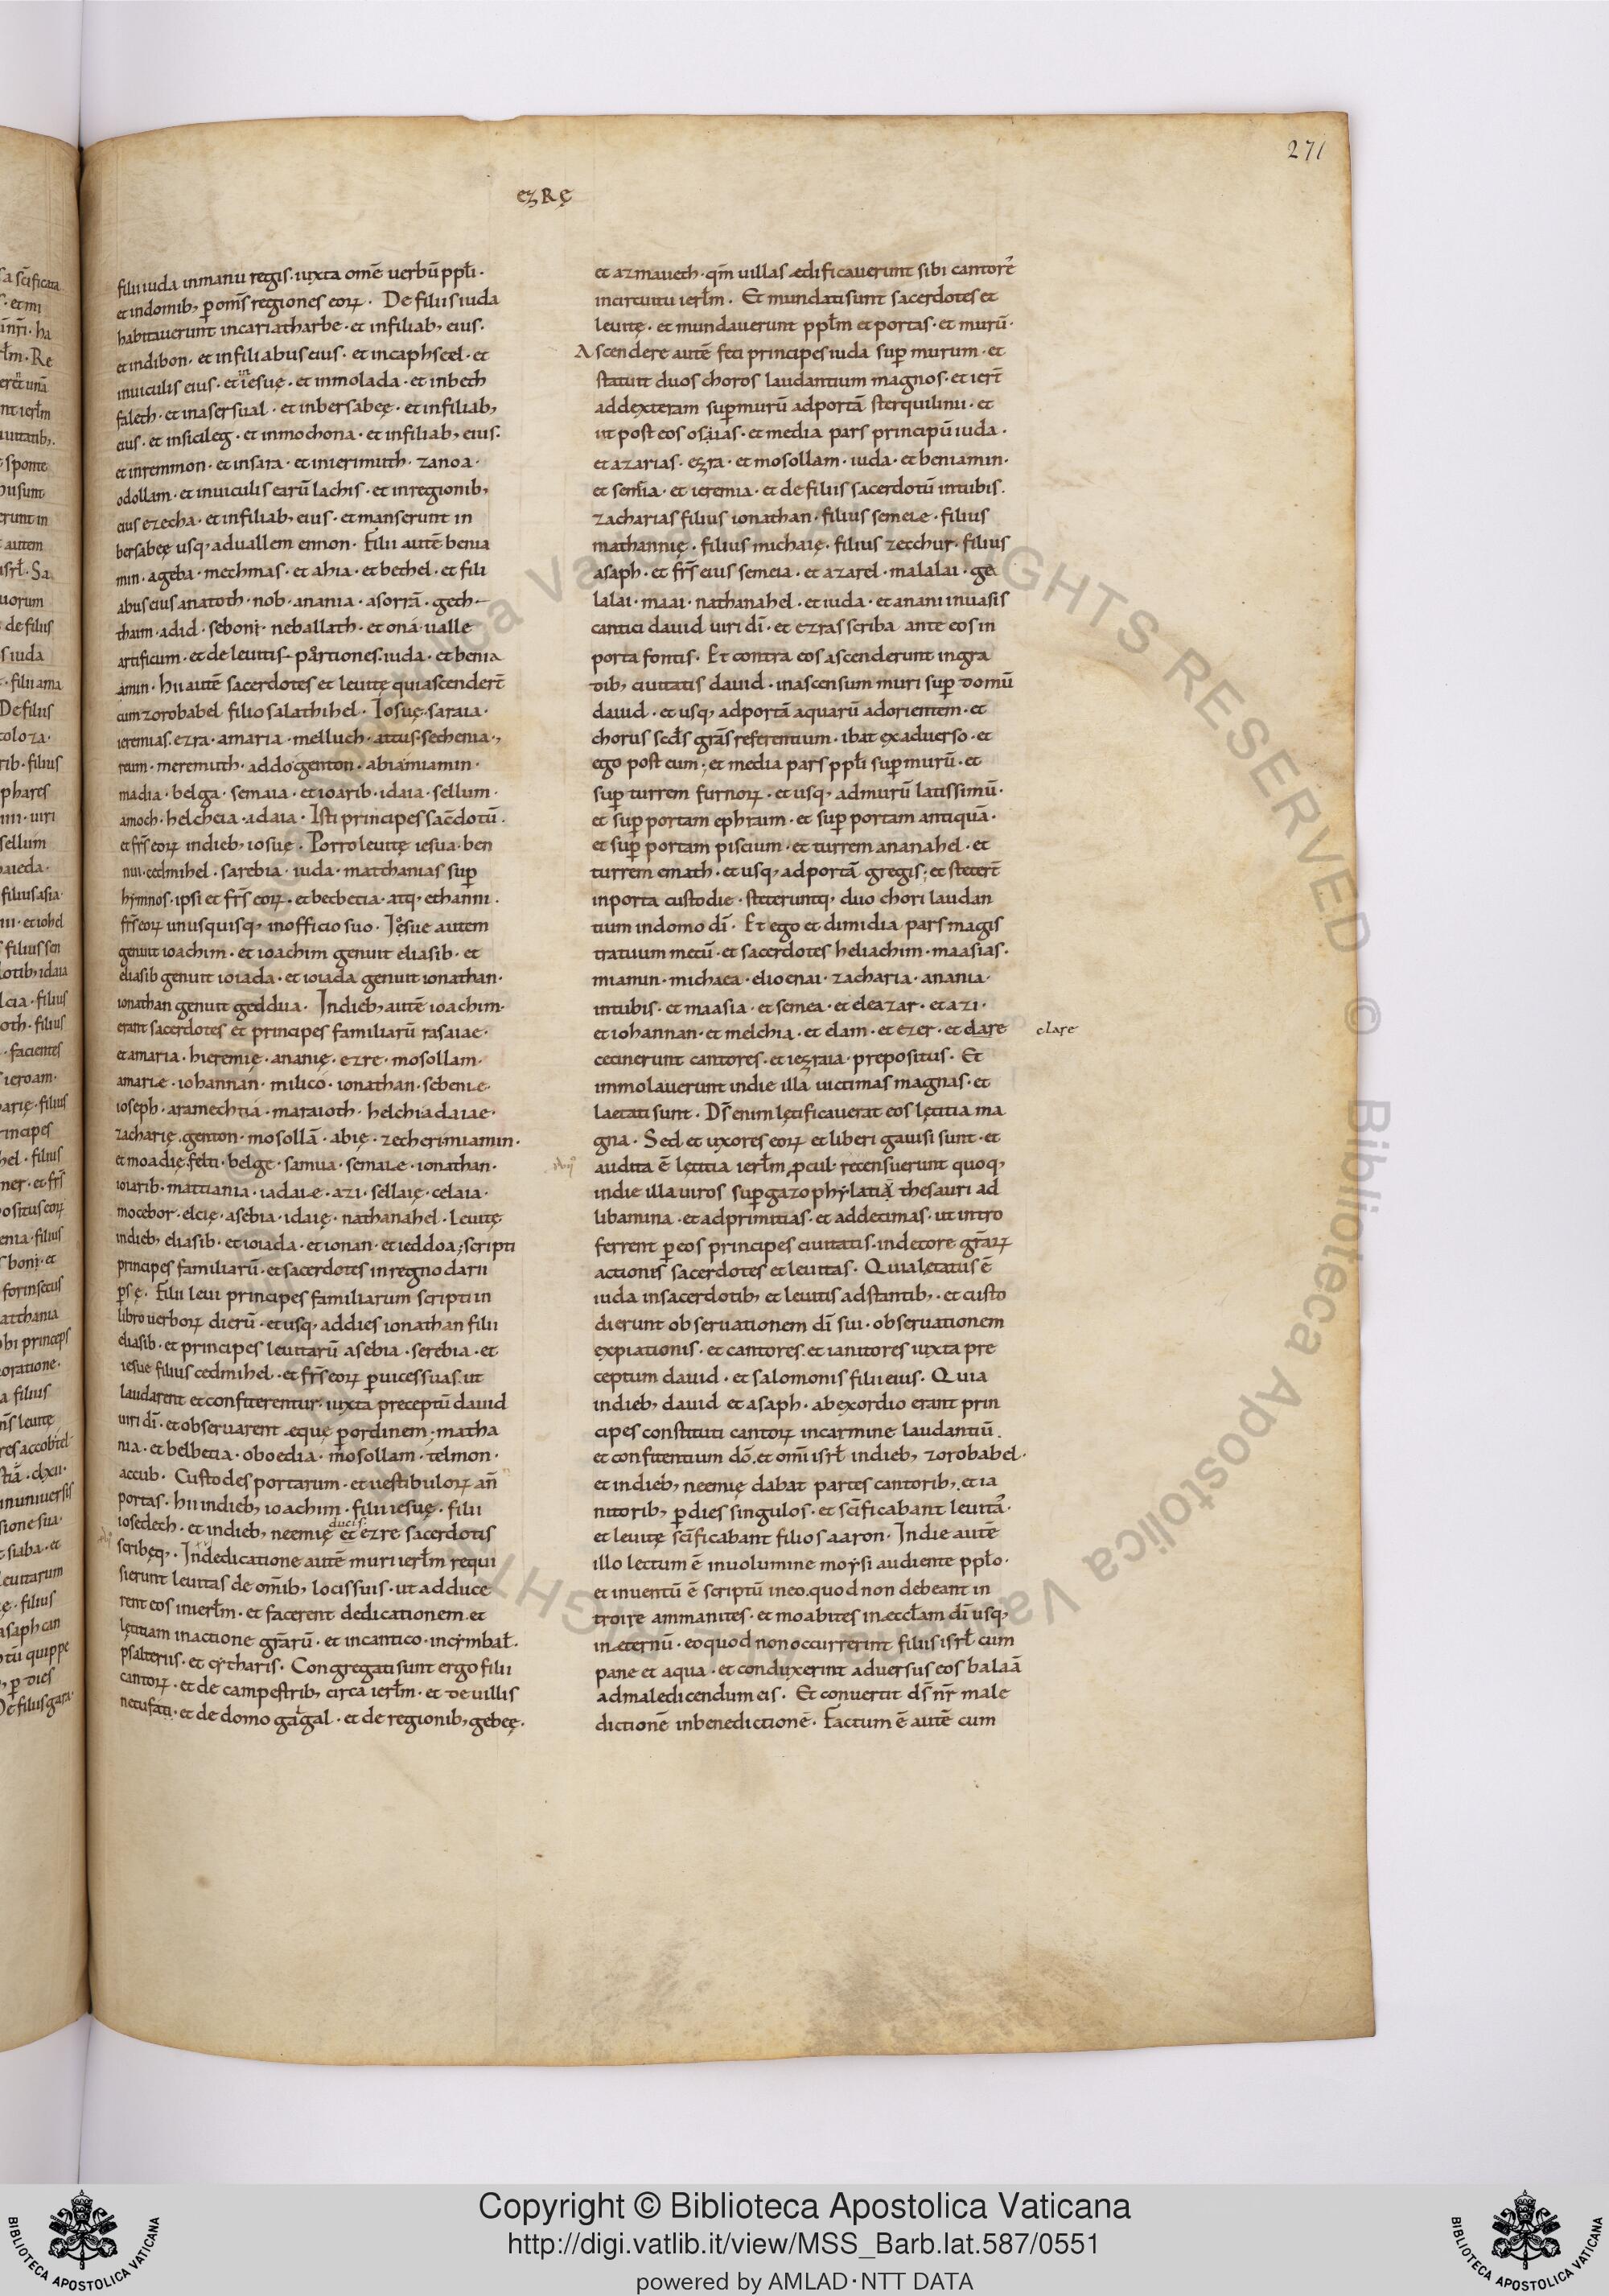 271
ezRę
filii iuda inmanu regis · iuxta omē uerbū ppłi ·
et indomib; p oms̄ regiones eoꝝ · De filiis iuda
habitauerunt incariatharbe · et infiliab; eius ·
et indibon · et infiliabus eius · et incaphseel · et
inuiculis eius · et iniesuę · et inmolada · et inbeth
faleth · et inasersual · et inbersabeę · et infiliab;
eius · et insicileg · et inmochona · et infiliab; eius ·
et inremmon · et insara · et inierimuth · zanoa ·
odollam · et inuiculis earū lachis · et inregionib;
eius ezecha · et infiliab; eius · et manserunt in
bersabeę usq; aduallem ennon · Filii autē benia
min · ageba · mechmas · et ahia · et bethel · et fili
abus eius anatoth · nob · anania · asorrā · geth
thaim · adid · seboni · neballath · et ona · ualle
artificum · et de leuitis partiones iuda · et benia
amin · hii autē sacerdotes et leuitę qui ascender̄t
cum zorobabel filio salathihel · Iosuę · saraia ·
ieremias · ezra · amaria · melluch · attus · sechenia ·
reum · meremuth · addo · genton · abia · miamin ·
madia · belga · semaia · et ioarib · idaia · sellum ·
amoch · helcheia · adaia · Isti principes sac̄dotū ·
et frs̄ eoꝝ indieb; iosuę · Porro leuitę iesua · ben
nui · cedmihel · sarebia · iuda · matthanias sup
hymnos · ipsi et frs̄ eoꝝ · et becbecia · atq; ethanni ·
frs̄ eoꝝ unusquisq; inofficio suo · Iesue autem
genuit ioachim · et ioachim genuit eliasib · et
eliasib genuit ioiada · et ioiada genuit ionathan ·
ionathan genuit geddua · Indieb; autē ioachim ·
erant sacerdotes et principes familiarū rasaiae ·
et amaria · hieremię · ananię · ezre · mosollam ·
amarie · iohannan · milico · ionathan · sebenie ·
ioseph · aramechtia · maraioth · helchiadaiae ·
zacharię · genton · mosollā · abię · zecherimiamin ·
et moadię · felti · belge · samua · semaie · ionathan ·
ioiarib · mattiania · iadaie · azi · sellaię · celaia ·
mocebor · elcię · asebia · idaię · nathanahel · Leuitę
indieb; eliasib · et ioiada · et ionan · et ieddoa; scripti
principes familiarū · et sacerdotes inregno darii
psę · Filii leui principes familiarum scripti in
libro uerboꝝ dierū · et usq; addies ionathan filii
eliasib · et principes leuitarū asebia · serebia · et
iesue filius cedmihel · et frs̄ eoꝝ p uices suas · ut
laudarent et confiterentur · iuxta preceptū dauid
uiri dī · et obseruarent eque p ordinem · matha
nia · et belbetia · oboedia · mosollam · telmon ·
accub · Custodes portarum · et uestibuloꝝ an̄
portas · hii indieb; ioachim · filii iesuę · filii
iosedech · et indieb; neemię ducis et ezre sacerdotis
scribęq; · Indedicatione autē muri ierłm requi
sierunt leuitas de om̄ib; locis suis · ut adduce
rent eos inierłm · et facerent dedicationem et
lętitiam inactione grārū · et incantico · incymbał ·
psalteriis · et cytharis · Congregati sunt ergo filii
cantoꝝ · et de campestrib; circa ierłm · et de uillis
netufati · et de domo galgal · et de regionib; gebeę ·
et azmaueth · qm̄ uillas ædificauerunt sibi cantore
incircuitu ierłm · Et mundati sunt sacerdotes et
leuitę · et mundauerunt ppłm et portas · et murū ·
Ascendere autē feci principes iuda sup murum · et
statuit duos choros laudantium magnos · et ier̄t
addexteram sup murū adportā sterquilinii · et
iit post eos osaias · et media pars principū iuda ·
et azarias · ezra · et mosollam · iuda · et beniamin ·
et semia · et ieremia · et de filiis sacerdotū intubis ·
zacharias filius ionathan · filius semeie · filius
mathannię · filius michaię · filius zecchur · filius
asaph · et frs̄ eius semeia · et azarel · malalai · ga
lalai · maai · nathanahel · et iuda · et anani inuasis
cantici dauid uiri dī · et ezras scriba ante eos in
porta fontis · Et contra eos ascenderunt ingra
dib; ciuitatis dauid · inascensum muri sup domū
dauid · et usq; adportā aquarū adorientem · et
chorus sec̄ds grās referentium · ibat exaduerso · et
ego post eum; et media pars ppłi sup murū · et
sup turrem furnoꝝ · et usq; admurū latissimū ·
et sup portam ephraim · et sup portam antiquā ·
et sup portam piscium · et turrem ananahel · et
turrem emath · et usq; adportā gregis; et steter̄t
inporta custodie · steteruntq; duo chori laudan
tium indomo dī · Et ego et dimidia pars magis
tratuum mecū · et sacerdotes heliachim · maasias ·
miamin · michaea · elioenai · zacharia · anania ·
intubis · et maasia · et semea · et eleazar · et azi ·
et iohannan · et melchia · et elam · et ezer · et dare
clare
cecinerunt cantores · et iezraia · prepositus · Et
immolauerunt indie illa uictimas magnas · et
laetati sunt · Ds̄ enim lętificauerat eos lętitia ma
gna · Sed et uxores eoꝝ et liberi gauisi sunt · et
audita ē lętitia ierłm pcul · recensuerunt quoq;
indie illa uiros sup gazophylatia thesauri ad
libamina · et adprimitias · et addecimas · ut intro
ferrent p eos principes ciuitatis · indecore grāꝝ
actionis sacerdotes et leuitas · Quia lętatus ē
iuda insacerdotib; et leuitis adstantib; · et custo
dierunt obseruationem dī sui · obseruationem
expiationis · et cantores · et ianitores iuxta pre
ceptum dauid · et salomonis filii eius · Quia
indieb; dauid et asaph · abexordio erant prin
cipes constituti cantoꝝ incarmine laudantiū ·
et confitentium dō · et omī isrł indieb; zorobabel ·
et indieb; neemię dabat partes cantorib; · et ia
nitorib; p dies singulos · et scīficabant leuita ·
et leuitę scīficabant filios aaron · Indie autē
illo lectum ē inuolumine moysi audiente ppło ·
et inuentū ē scriptū ineo · quod non debeant in
troire ammanites · et moabites in æccłam dī usq;
in æternū · eo quod non occurrerint filiis isrł cum
pane et aqua · et conduxerint aduersus eos balaā
admaledicendum eis · Et conuertit ds̄ nr̄ male
dictionē inbenedictionē · Factum ē autē cum
Copyright © Biblioteca Apostolica Vaticana
http://digi.vatlib.it/view/MSS_Barb.lat.587/0551
powered by AMLAD·NTT DATA